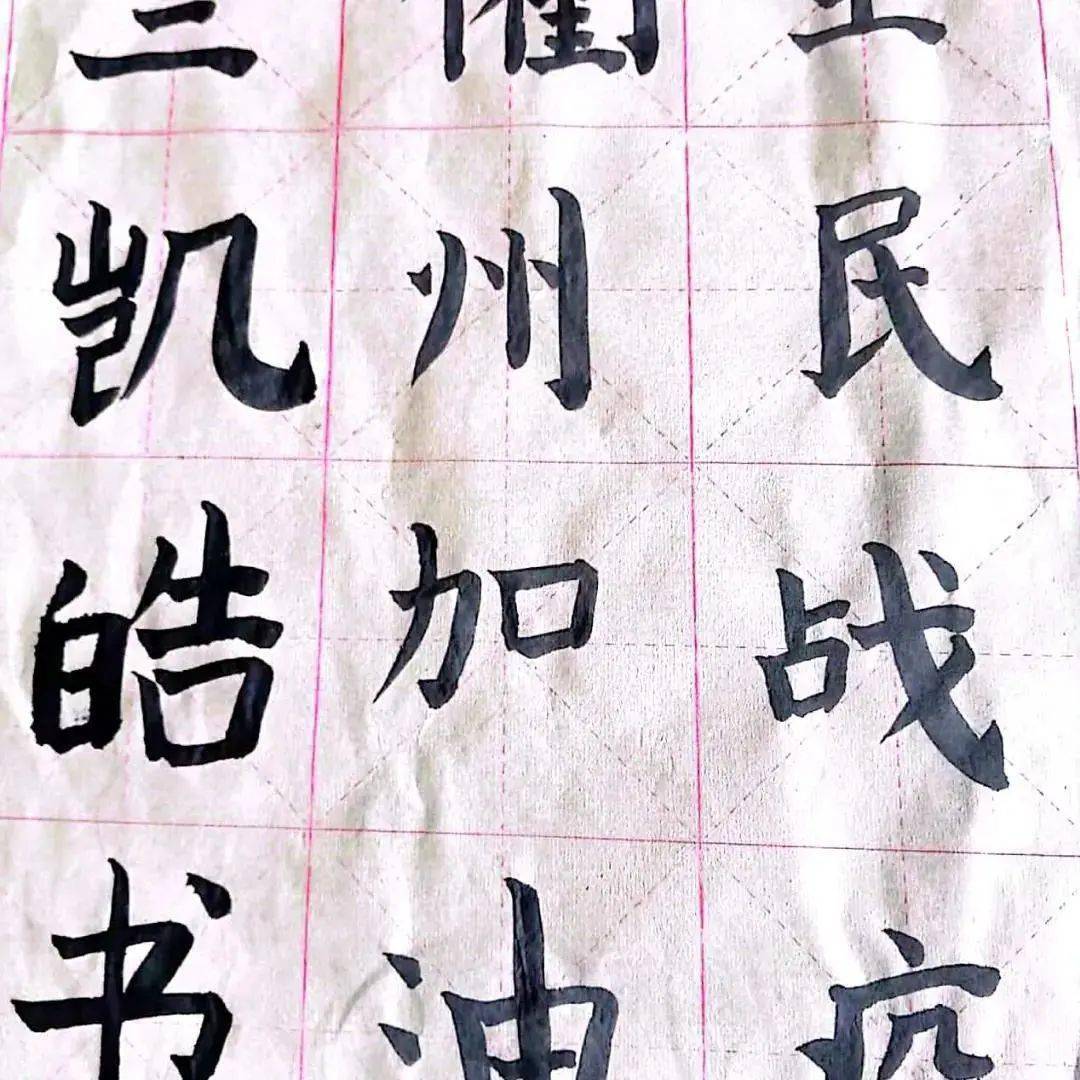 全民战疫
衢州加油
凯皓书